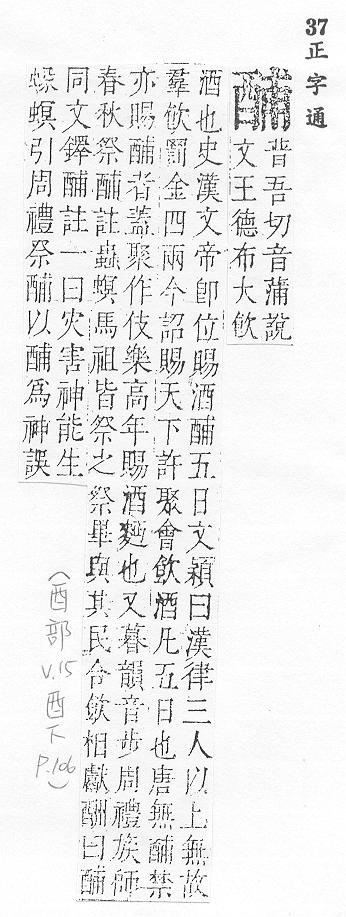 37正字通
酺
背吾切音蒲說
文王德布大飲
酒也史漢文帝卽位賜酒酺五日文穎曰漢律三人以上無故
羣飲罰金四兩今詔賜天下許聚會飲酒凡五日也唐無酺禁
亦賜酺者蓋聚作伎樂高年賜酒麪也又暮韻音步周禮族師
春秋祭酺註蟲螟馬祖皆祭之祭畢與其民合飲相獻酬曰酺
同文鐸酺註一曰灾害神能生
蝝螟引周禮祭酺以酺爲神誤
(酉部 V.15 酉下 P.106)